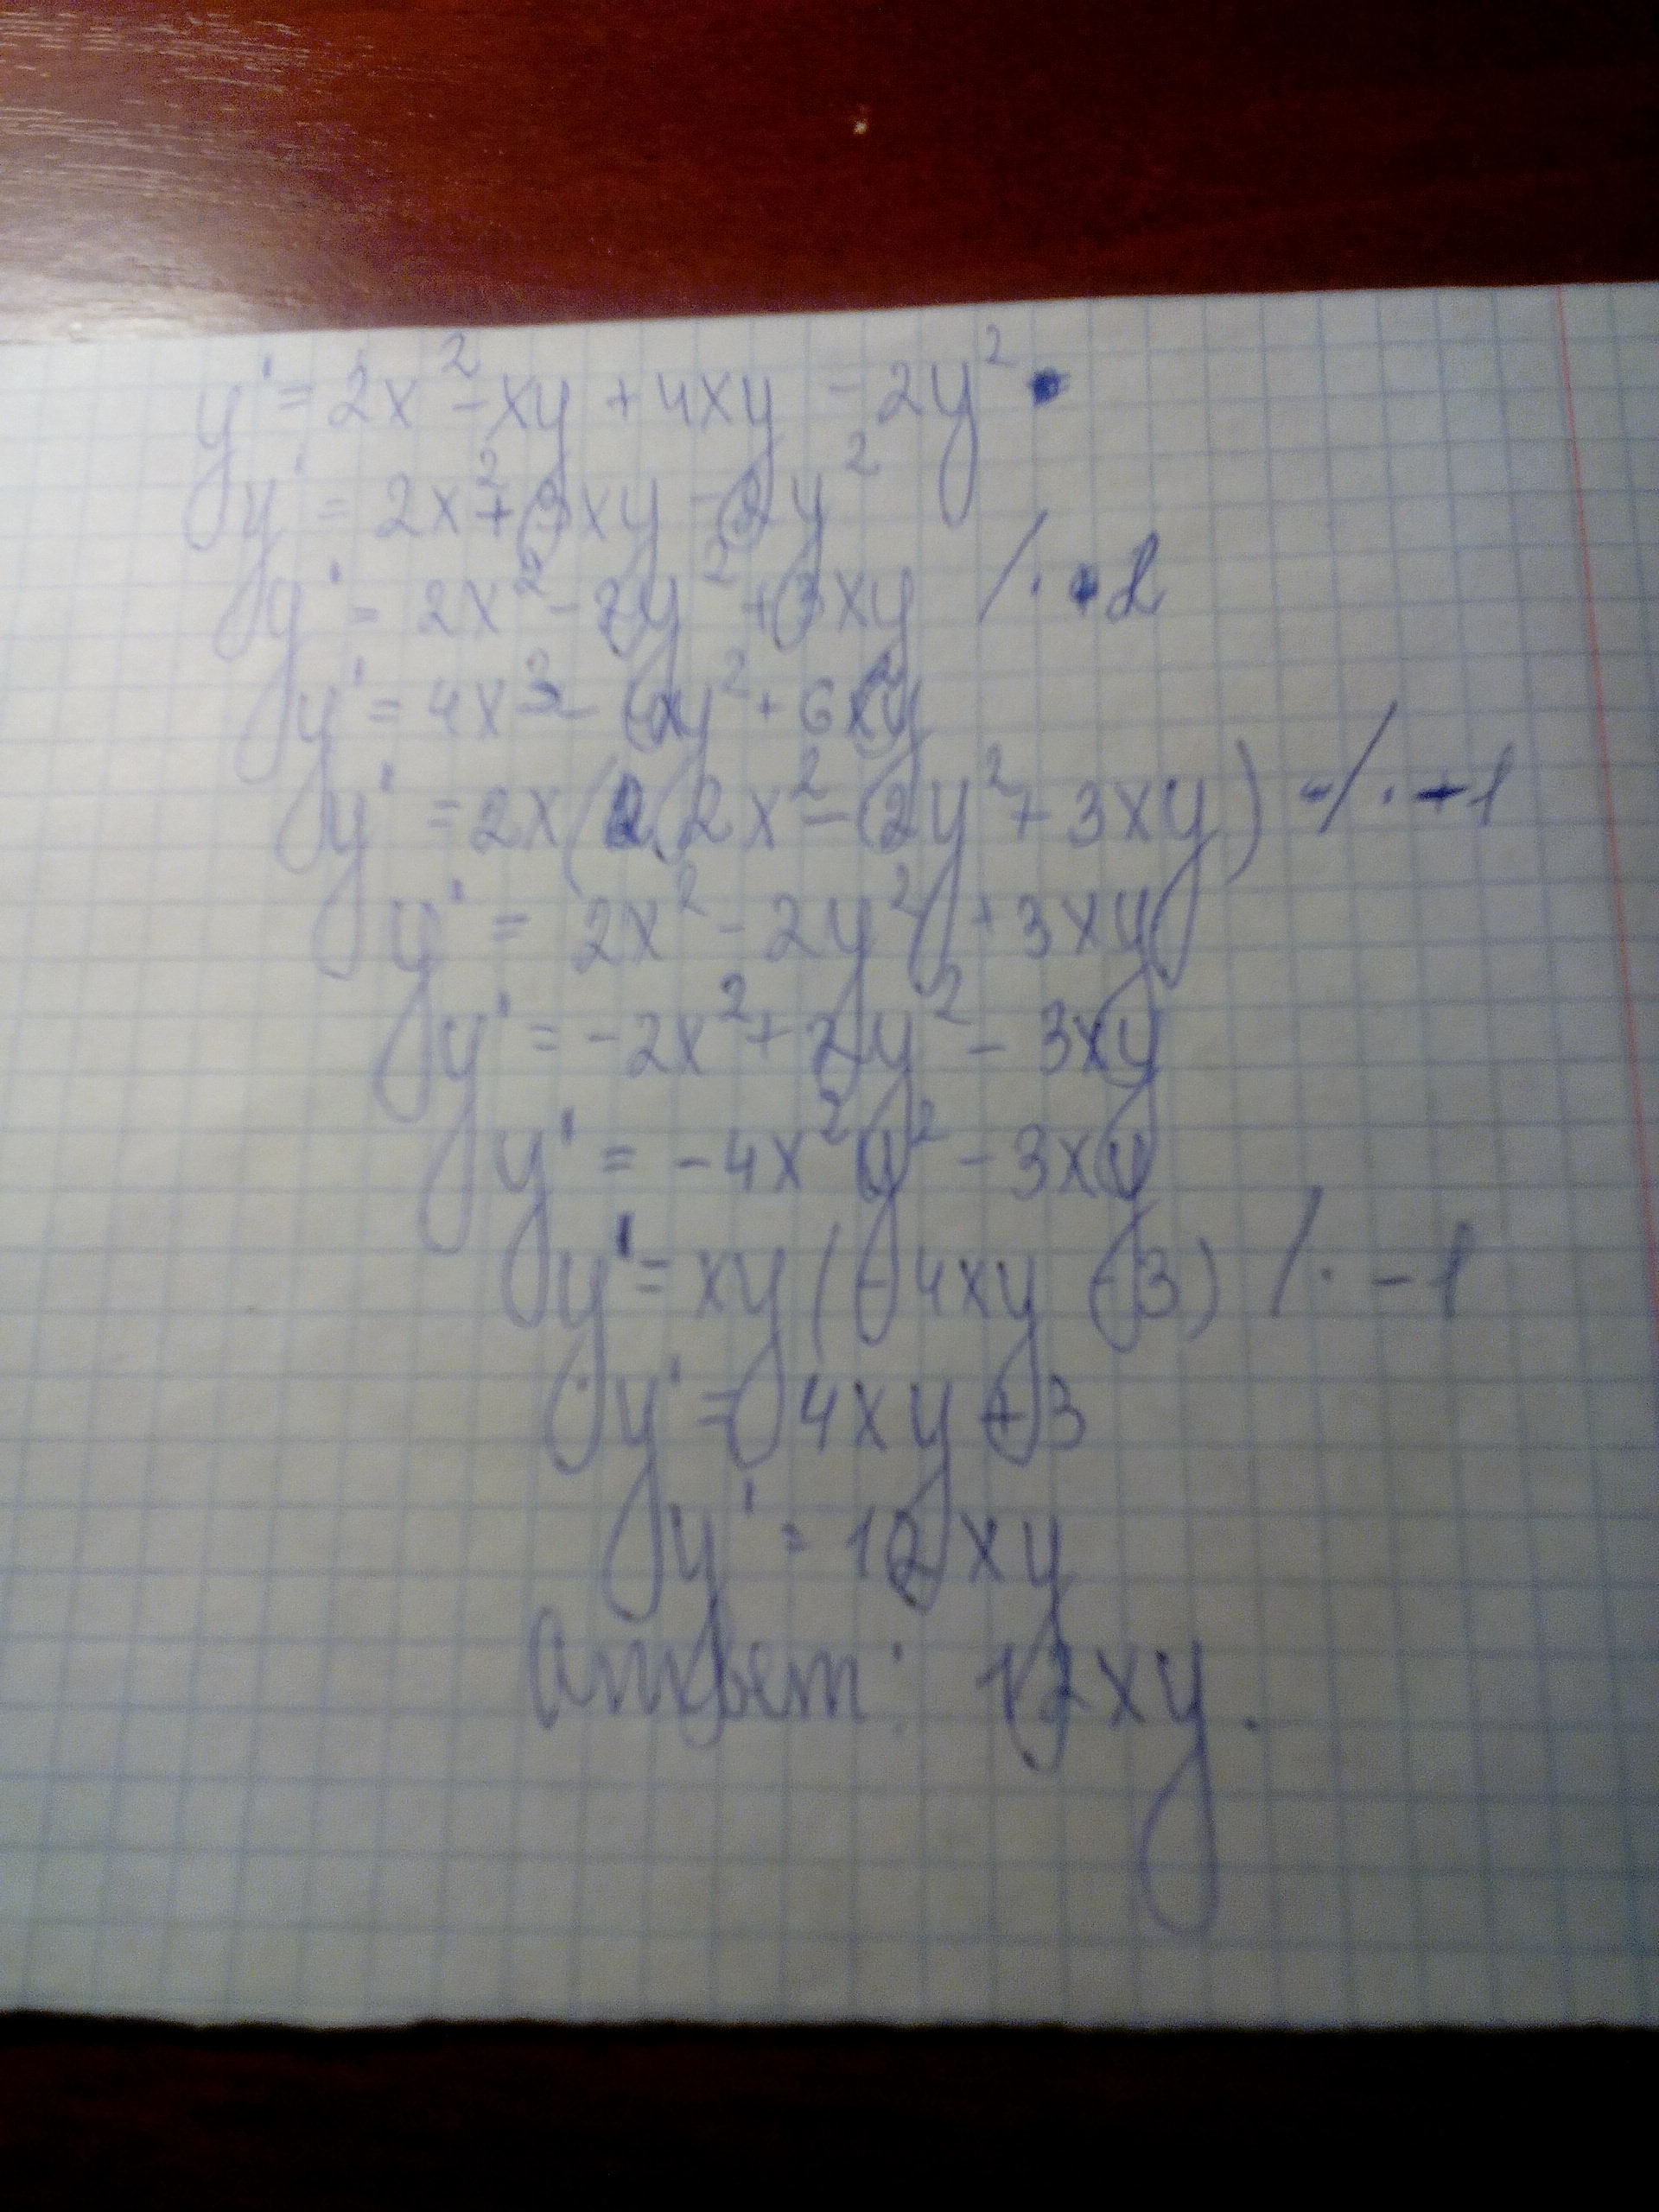 y' = 2x² - xy + 4xy - 2y²
y' = 2x² + 3xy - 2y²
y' = 2x² - 2y² + 3xy / · 2
y' = 4x³ - 4xy² + 6x²y
y' = 2x(2x² - 2y² + 3xy) / · -1
y' = 2x² - 2y² + 3xy
y' = -2x² + 2y² - 3xy
y' = -4x²y² - 3xy
y' = xy(-4xy - 3) / · -1
y' = 4xy + 3
y' = 12xy
Ответ: 12xy.